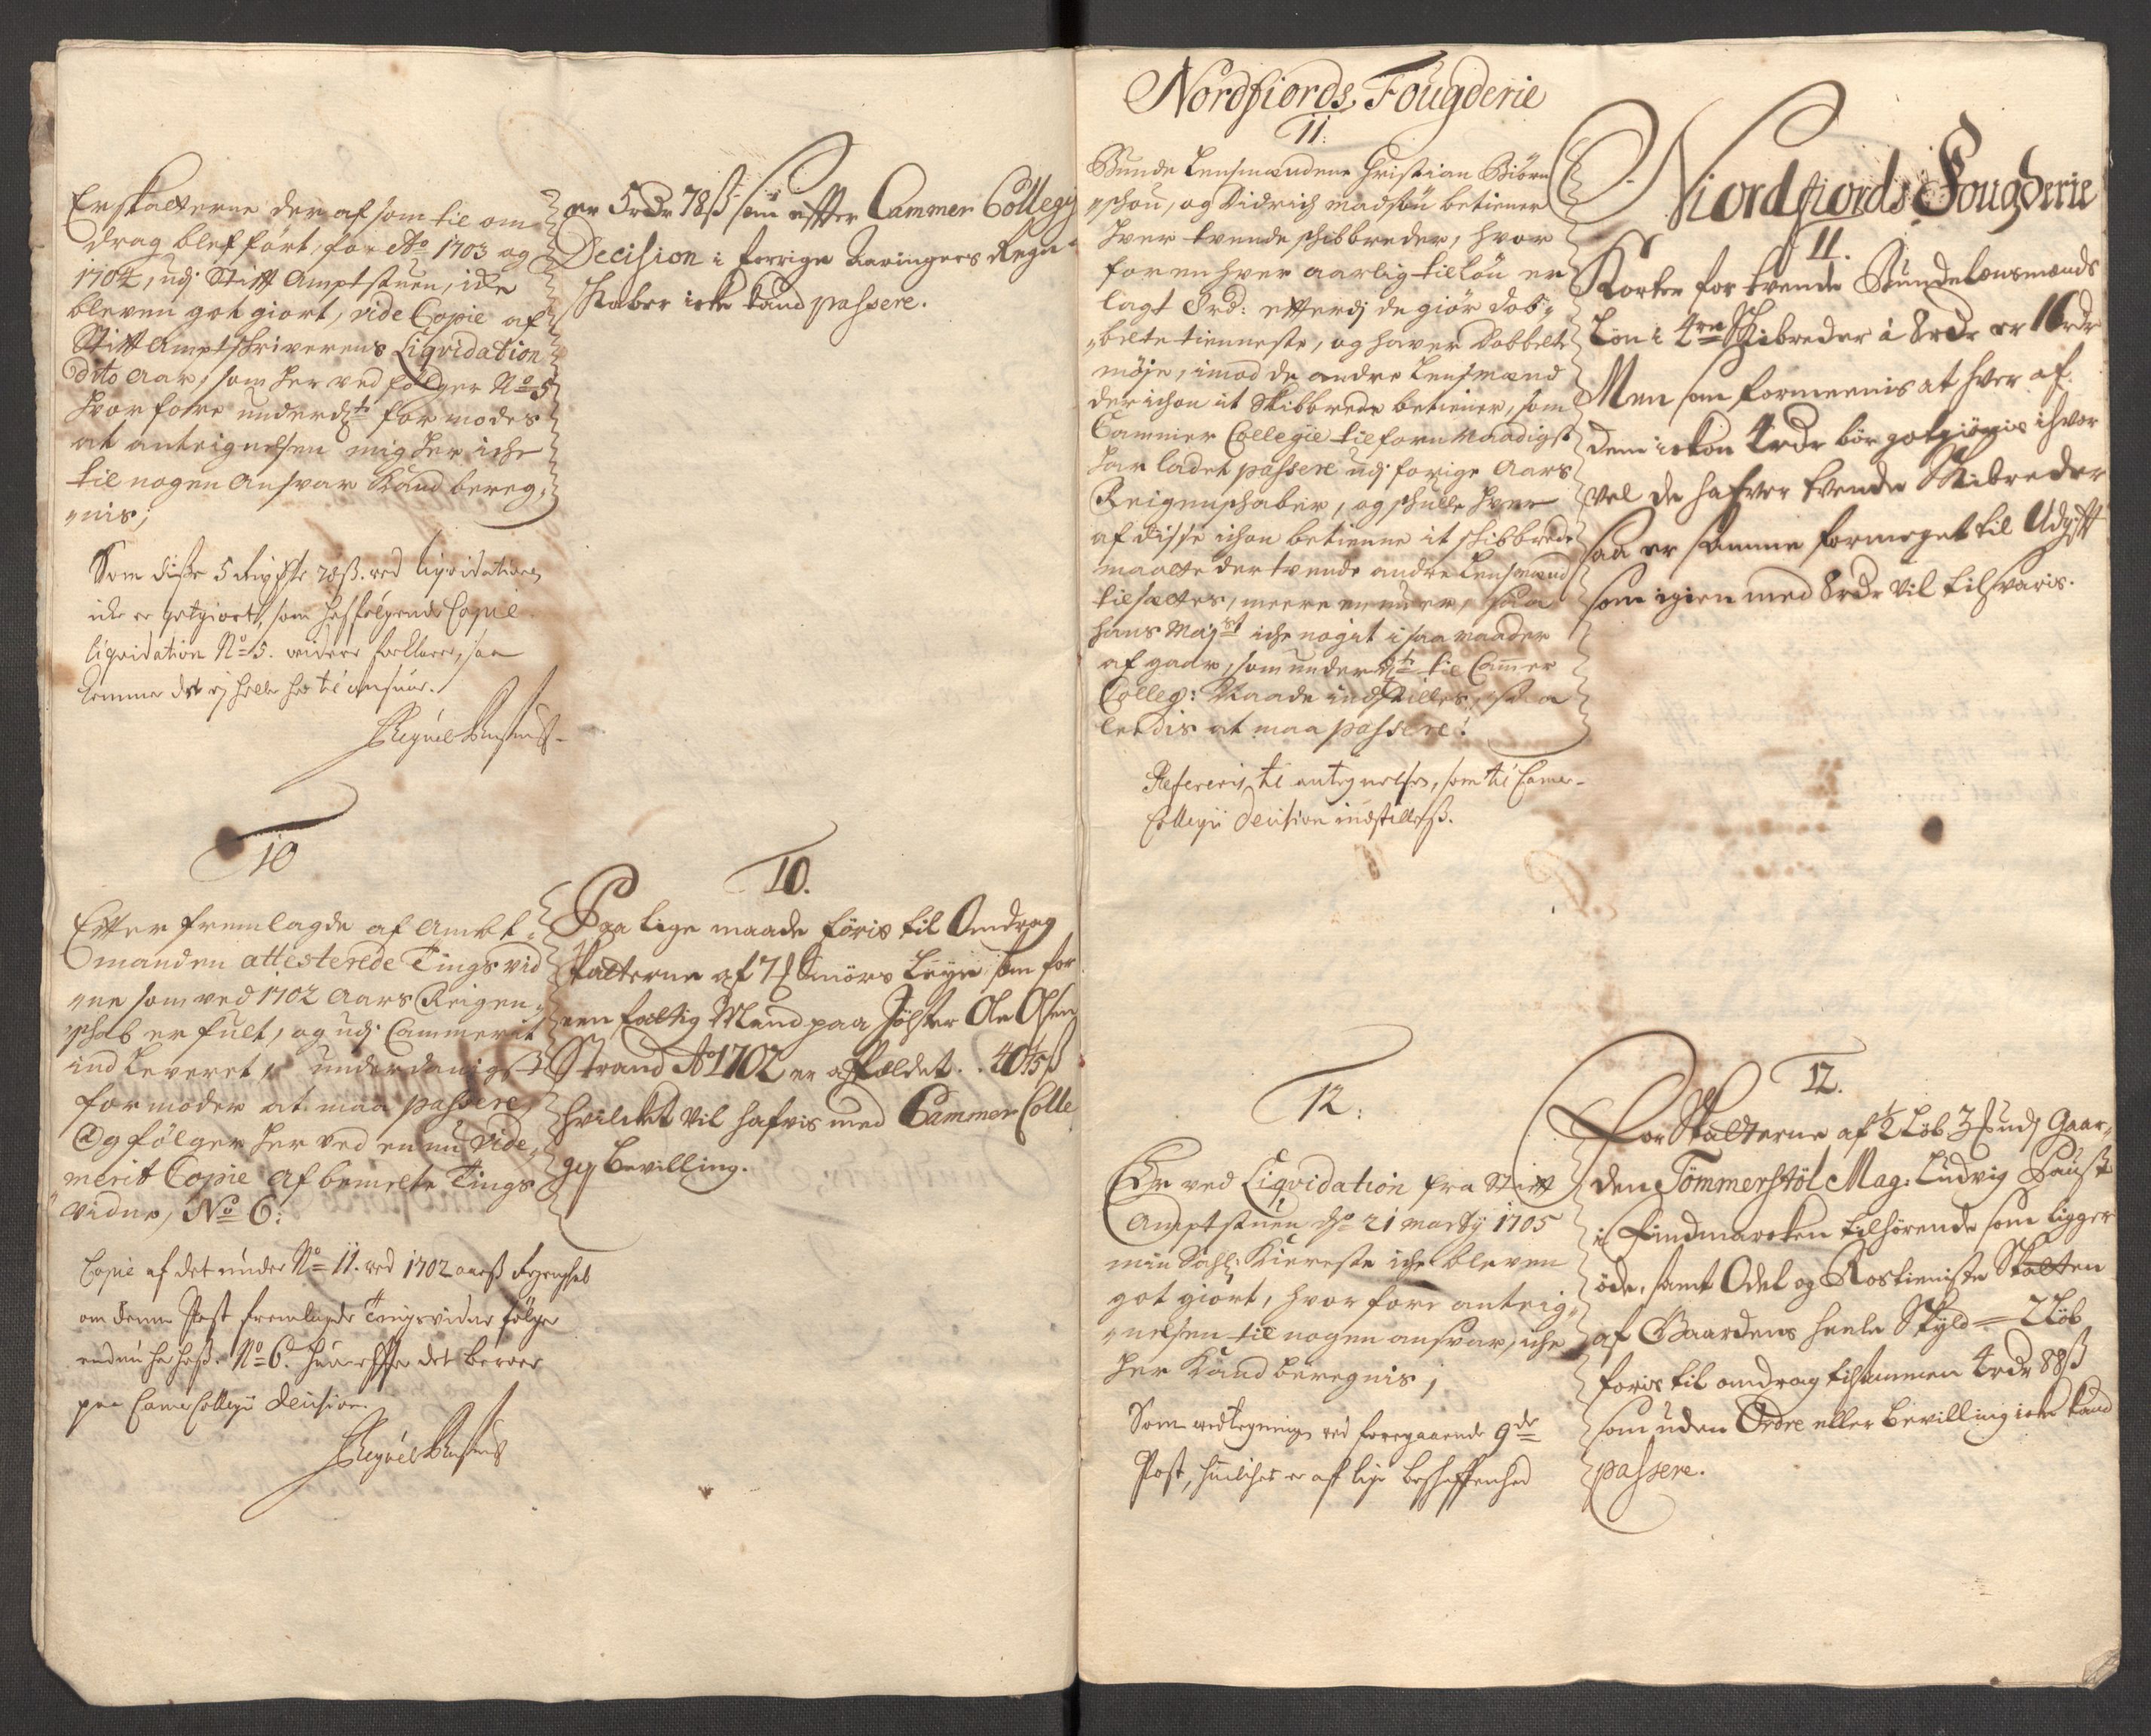 Er skatterne der af som til om
drag blef ført, for Ao 1703 og
1704, udj Stift Amptstuen, iche
bleven got giort, vide Copie af
Stift Amptskriverens Liqvidation
dito Aar, som her ved følger No 5
hvor fore underdt formodes
at anteignelsen mig her iche
til nogen Ansvar kand bereg¬
nis;
Som disse 5 Rigsdr 78 ß. ved liqvidationen
iche er gotgiort, som hosfølgende Copie
liqvidation No 5. videre forklarer, saa
komme det ej heller her til ansuar.
er 5 rdr 78 ß som effter Cammer Collegij
Decision i forrige Aaringers Regn¬
skaber icke kand passere.
10
Effter fremlagde af Ambt¬
manden attesterede Tingsvid
ne som ved 1702 Aars Reigen¬
schab er fult, og udj Cammerit
indleveret, underdanigst
formoder at maa passere,
Og følger her ved en nu vide¬
merit Copie af bemelte Tings
vidne, No 6:
Copie af det under No 11. ved 1702 aars Regenschab
om denne Post fremlagde Tingsvidne følger
endnu her hoss. No 6. huorefter det beroer
paa Camer Collegii decision.
10.
Paa lige maade føris til Omdrag
skatterne af 7 Smørs Leye som for
een fattig Mand paa Jølster Ole Olsen
Strand Ao 1702 er affeldet. 40 1/5 ß
hvilcket vil hafvis med Cammer Colle
gij bevilling.
Nordfiords Fougderie
11.
Bunde Lensmændene Christian Biørn
schou, og Didrich Madsøn betiener
hver tvende schibbreder, hvor
for en hver aarlig til løn er
lagt 8 rd: efterdj de giør dob¬
belte tienneste, og haver dobbelte
møje, imod de andre Lensmænd
der ichon it Skibbrede betiener, som
Cammer Collegie tilforn Naadigst
har ladet passere udj forige Aars
Reigenschaber, og schulle hver
af disse ichon betienne it schibbrede
maatte der tvende andre Lensmænd
tilsettes, meere end nu er, saa
hans Majst iche noget i saa maader
af gaar, som underdt til Camer
Colleg: Naade indstilles, saa
ledis at maa passere!
Refereris til antegnelsen, som til Camer¬
Collegii decision indstilles.
Niordfiords Fougderie
11.
Korter for tvende Bundelensmends
Løn i 4re Skibreder á 8 rdr er 16 rdr
Men som formeenis at hver af
dem ickon 4 rdr bør gotgiøris ihvor
vel de hafver tvende Skibreder
saa er samme formeget til Udgift
som igien med 8 rdr vil tilsvaris.
12:
Er ved Liqvidation fra Stift
Amptstuen do 21 martij 1705
min Sahl: Kiereste iche bleven
got giort, hvor fore anteig¬
nelsen til nogen ansvar, iche
her kand beregnis;
Som vedtegningen ved foregaaende 9de
Post, huilchet er af lige beschaffenhed
12.
For Skatterne af 1/2 Løb 3 udj Gaar¬
den Tømmerstøl Mag: Ludvig Paust
i Findmarcken tilhørende som ligger
øde, samt Odel og Rostieniste Skatten
af Gaardens heele Skyld = 2 Løb
føris til omdrag tilsammen 4 rdr 88 ß
som uden Ordre eller bevilling icke kand
passere.